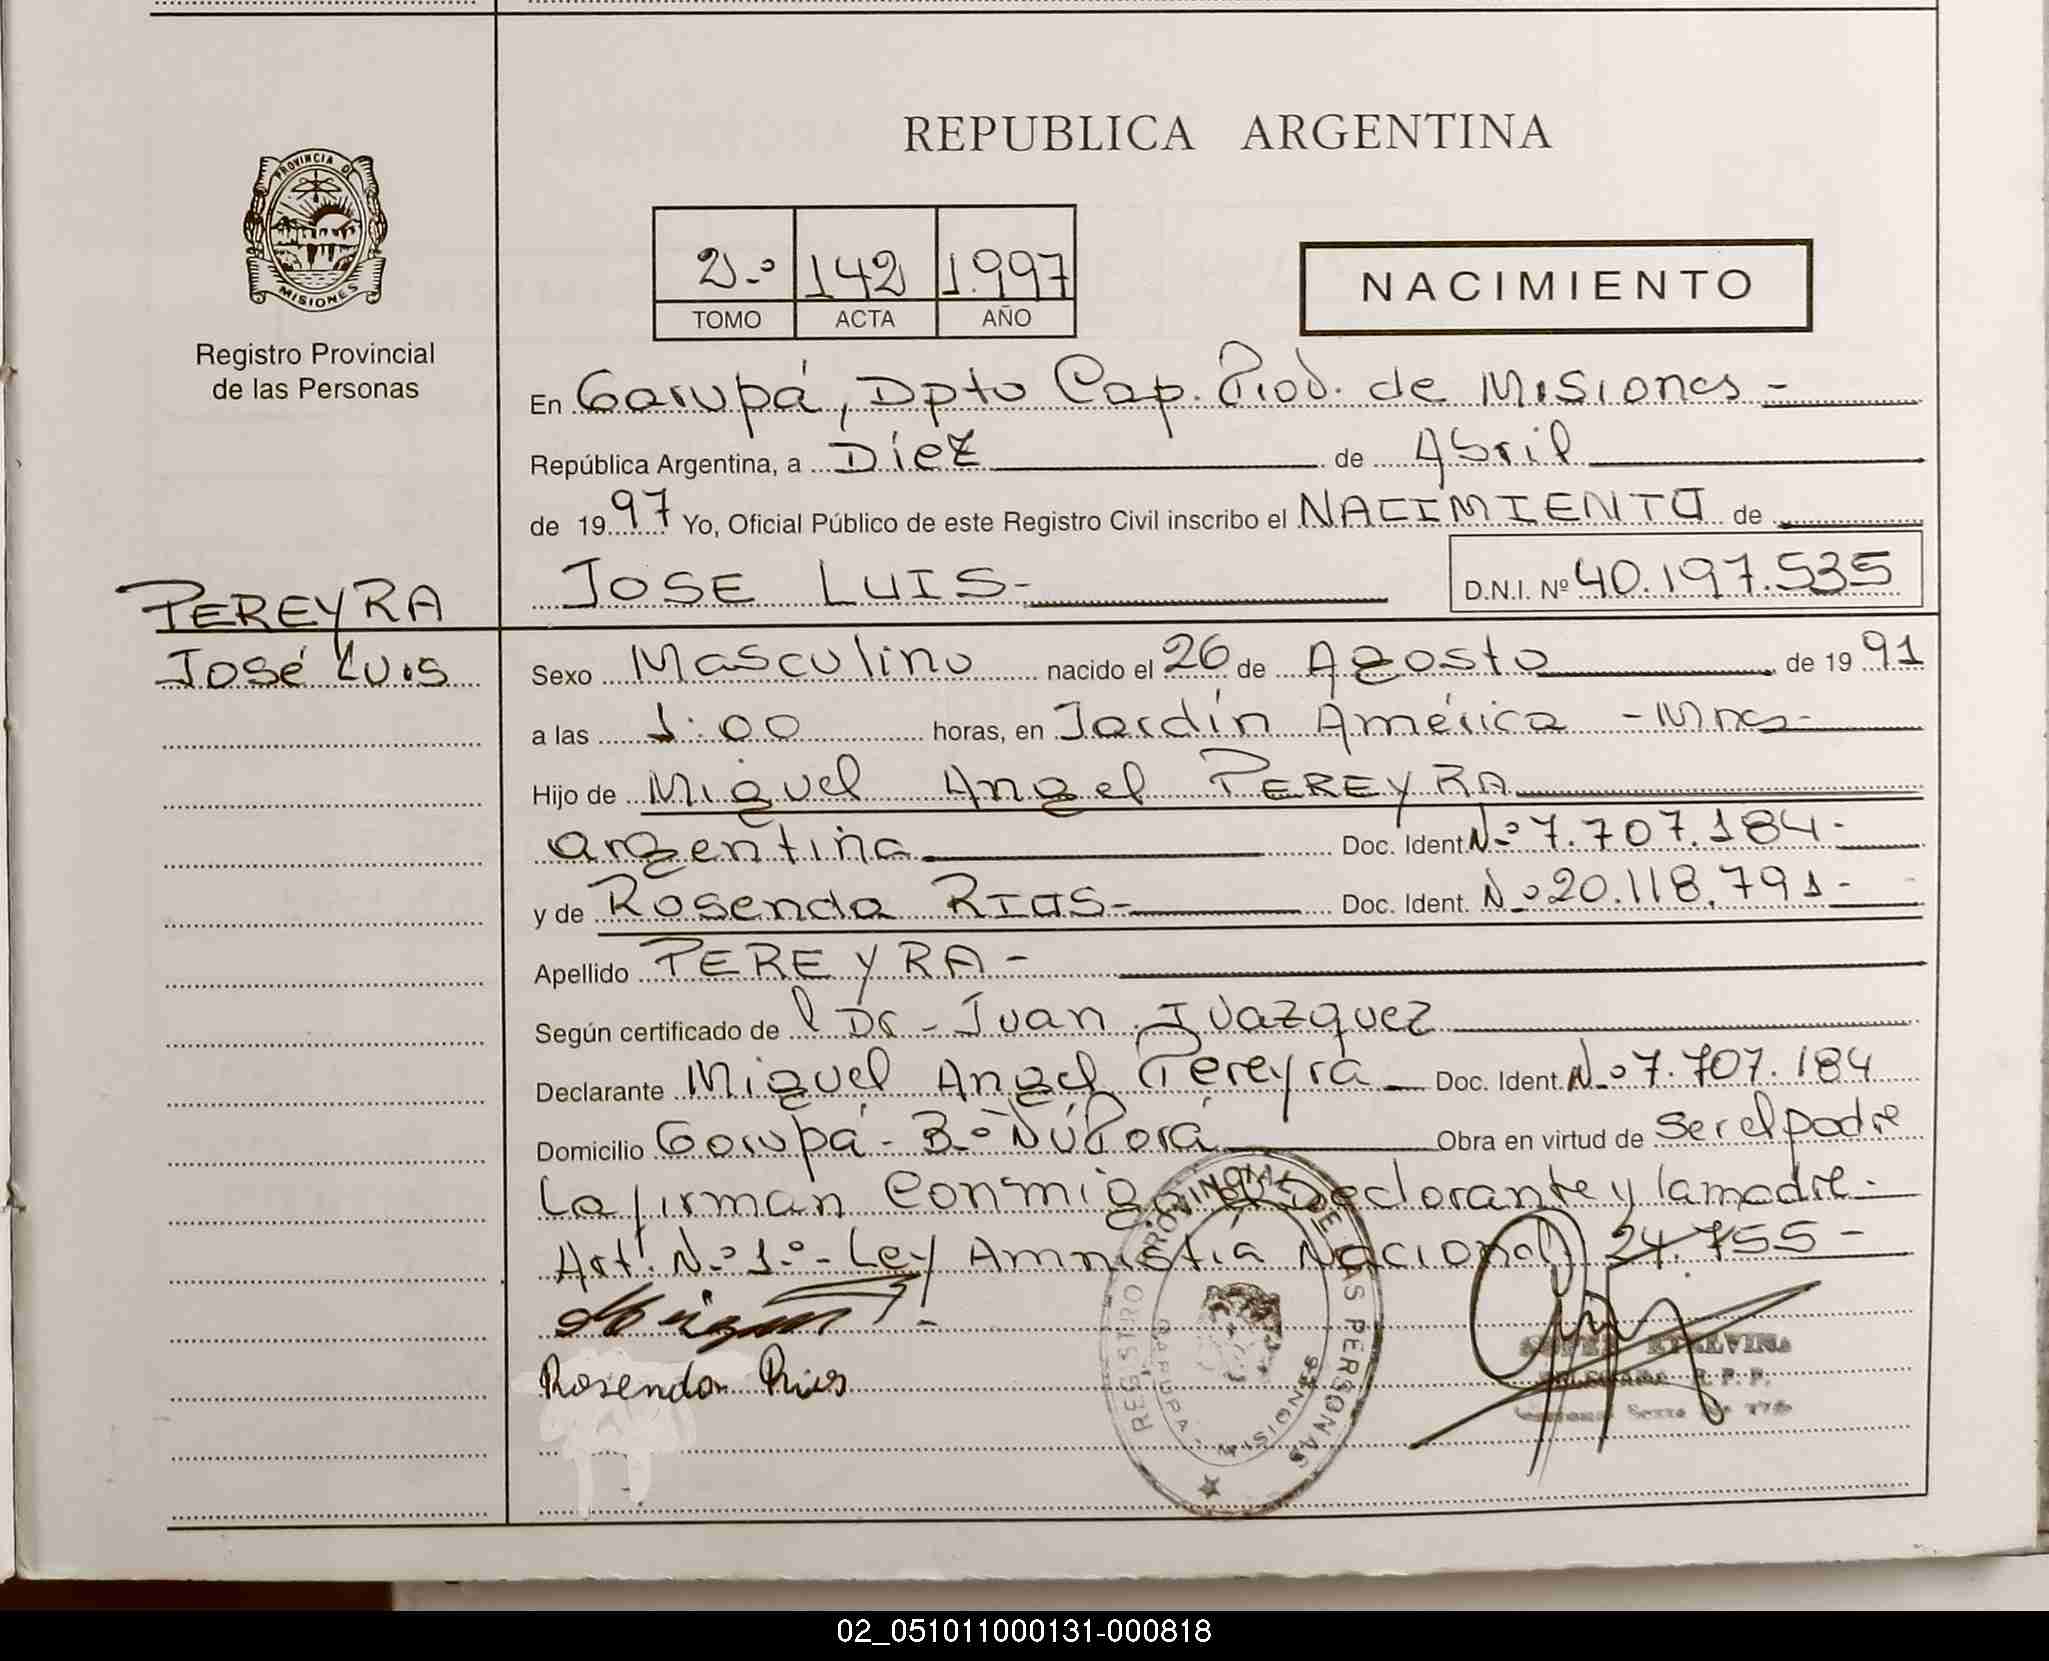 REPUBLICA ARGENTINA
PROVINCIA D
MISIONES
Registro Provincial
de las Personas
2º 142 1.997
TOMO ACTA AÑO
NACIMIENTO
En Garupá, Dpto Cap. Prov. de Misiones -
República Argentina, a Diez de Abril
de 1997 Yo, Oficial Público de este Registro Civil inscribo el NACIMIENTO de
JOSE LUIS- D.N.I. Nº 40.197.535
PEREYRA
José Luis
Sexo Masculino nacido el 26 de Agosto de 1991
a las 1:00 horas, en Jardín América - Mnes-
Hijo de Miguel Angel PEREYRA
argentina Doc. Ident. Nº 7.707.184-
y de Rosenda RIOS- Doc. Ident. Nº 20.118.791-
Apellido PEREYRA-
Según certificado de l Dr - Juan J Vazquez
Declarante Miguel Angel Pereyra Doc. Ident. Nº 7.707.184
Domicilio Garupá - Bº Ñú Porá Obra en virtud de ser el padre
La firman Conmigo el Declarante y la madre.
Art. Nº 1º - Ley Amnistía Nacional 24.755-
Rosenda Rios
REGISTRO PROVINCIAL DE LAS PERSONAS
GARUPA - MISIONES
02_051011000131-000818